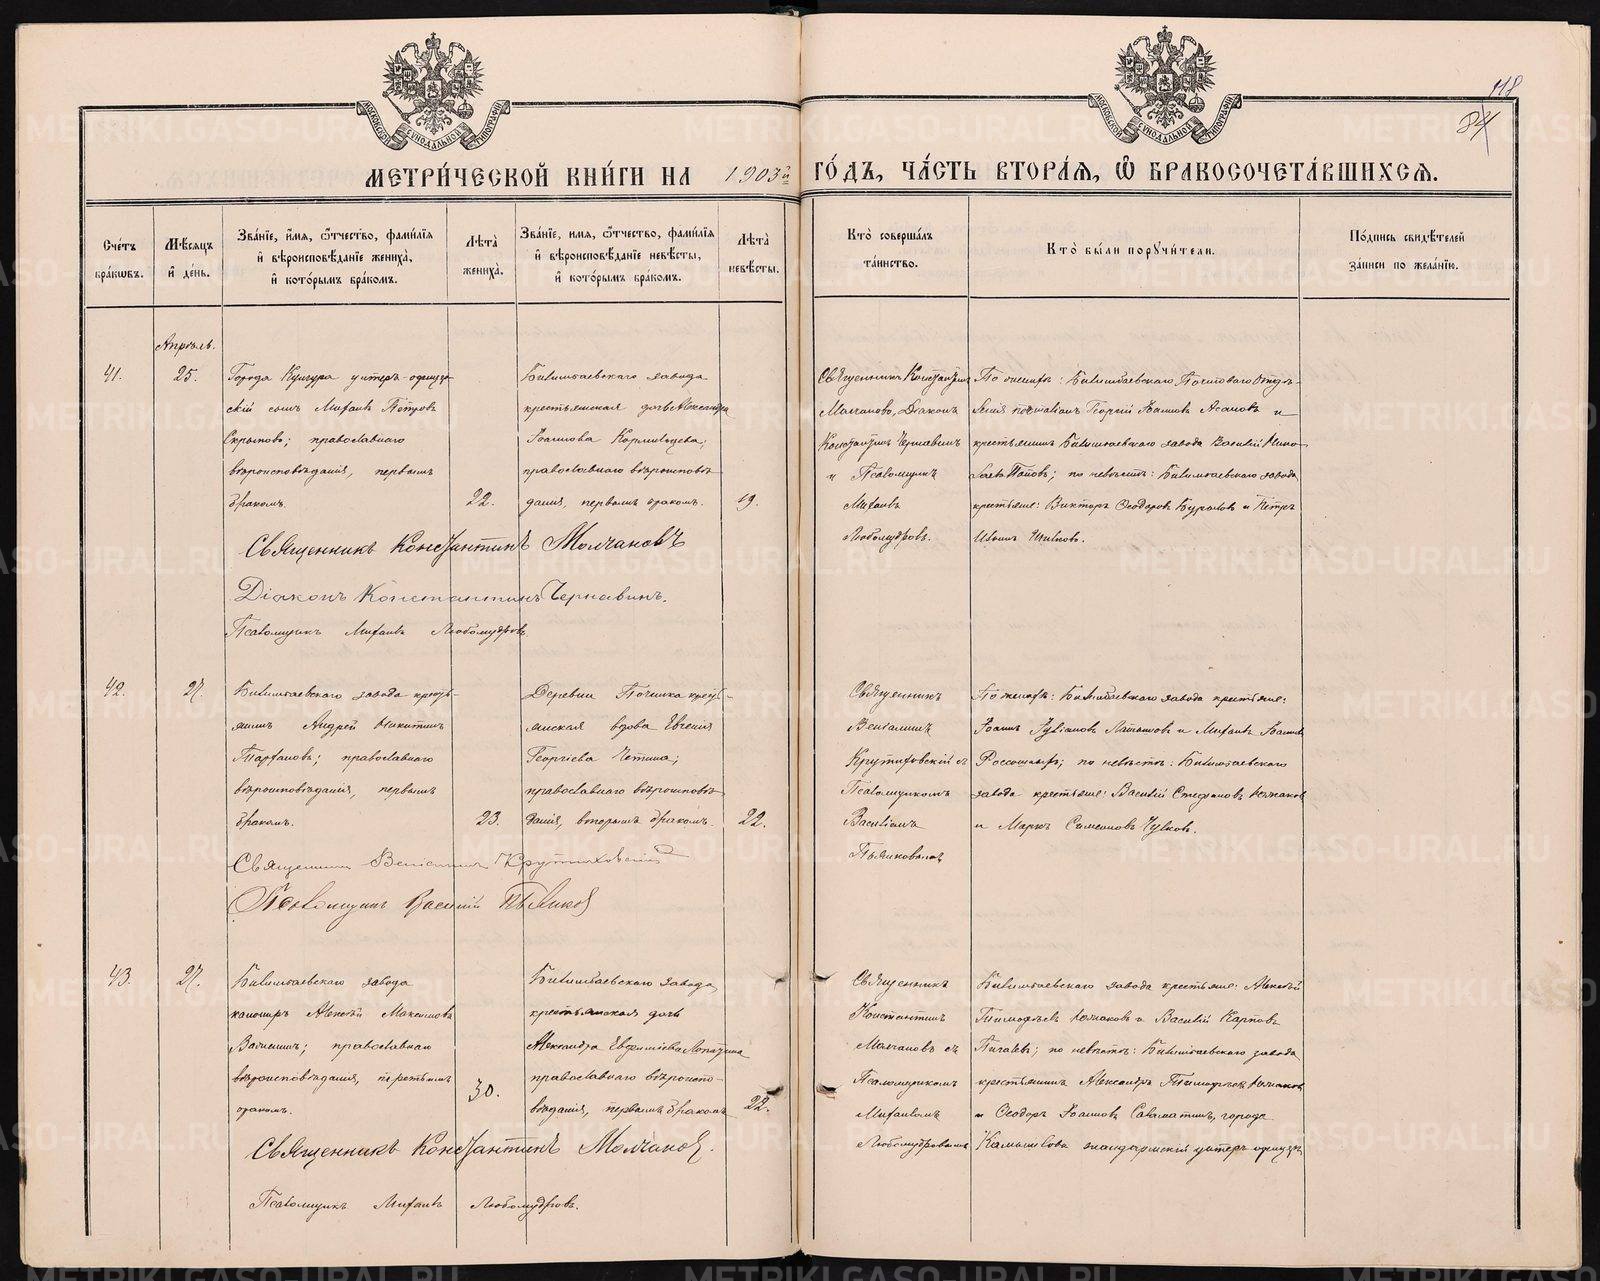 118
84
МОСКОВСКОЙ СѴНОДАЛЬНОЙ ТИПОГРАФІИ
МОСКОВСКОЙ СѴНОДАЛЬНОЙ ТИПОГРАФІИ
МЕТРИ́ЧЕСКОЙ КНИ́ГИ НА 1903й ГО́ДЪ, ЧА́СТЬ ВТОРА́Ѧ, Ѽ БРАКОСОЧЕТА́ВШИХСѦ.
Сче́тъ бра́кѡвъ.
Мѣ́сѧцъ и҆ де́нь.
Зва́нїе, и҆́мѧ, ѻ҆́тчество, фами́лїѧ и҆ вѣроисповѣ́данїе жениха̀, и҆ кото́рымъ бра́комъ.
Лѣ́та жениха̀.
Зва́нїе, и҆мѧ, ѻ҆́тчество, фами́лїѧ и҆ вѣроисповѣ́данїе невѣ́сты, и҆ кото́рымъ бра́комъ.
Лѣ́та невѣ́сты.
Кто̀ соверша́лъ та́инство.
Кто̀ бы́ли порꙋчи́тели.
По́дпись свидѣ́телей за́писи по жела́нїю.
Апрѣль.
41.
25.
Города Кунгура унтеръ-офицер-
скій сынъ Михаилъ Петровъ
православнаго
вѣроисповѣданія, первымъ
бракомъ.
22.
Билимбаевскаго завода
крестьянская дочь Александра
Іоаннова Кормильцева;
православнаго вѣроисповѣ-
данія, первымъ бракомъ.
19.
Священникъ Константинъ
Молчановъ, Діаконъ
Константинъ Чернавинъ
и Псаломщикъ
Михаилъ
Любомудровъ.
По женихѣ: Билимбаевскаго Почтоваго Отдѣ-
ленія Георгій Іоанновъ и
крестьянинъ Билимбаевскаго завода Василій
Поповъ; по невѣстѣ: Билимбаевскаго завода
крестьяне: Викторъ Ѳеодоровъ и Петръ
Священникъ Константинъ Молчановъ
Діаконъ Константинъ Чернавинъ.
Псаломщикъ Михаилъ Любомудровъ.
42.
27.
Билимбаевскаго завода кресть-
янинъ Андрей Никитинъ
православнаго
вѣроисповѣданія, первымъ
бракомъ.
23.
Деревни Починка кресть-
янская вдова Евгенія
Георгіева Четина;
православнаго вѣроисповѣ-
данія, вторымъ бракомъ.
22.
Священникъ
Веніаминъ
Крутиховскій съ
Псаломщикомъ
Василіемъ
Пьянковымъ
По женихѣ: Билимбаевскаго завода крестьяне:
Іоаннъ и Михаилъ Іоанновъ
по невѣстѣ: Билимбаевскаго
завода крестьяне: Василій Стефановъ Колмаковъ
и Маркъ Симеоновъ Чувковъ.
Священникъ Веніаминъ Крутиховскій
Псаломщикъ Василій Пьянковъ
43.
27.
Билимбаевскаго завода
Алексѣй Максимовъ
православнаго
вѣроисповѣданія, третьимъ
бракомъ.
30.
Билимбаевскаго завода
крестьянская дочь
Александра Евфиміева Лопатина
православнаго вѣроиспо-
вѣданія, первымъ бракомъ
22.
Священникъ
Константинъ
Молчановъ съ
Псаломщикомъ
Михаиломъ
Любомудровымъ
Билимбаевскаго завода крестьяне: Алексѣй
Тимофѣевъ Колмаковъ и Василій Карповъ
по невѣстѣ: Билимбаевскаго завода
крестьянинъ Александръ Тимофѣевъ Колмаковъ
и Ѳеодоръ Іоанновъ Саломатинъ, города
Камышлова жандармскій унтеръ офицеръ
Священникъ Константинъ Молчановъ.
Псаломщикъ Михаилъ Любомудровъ.